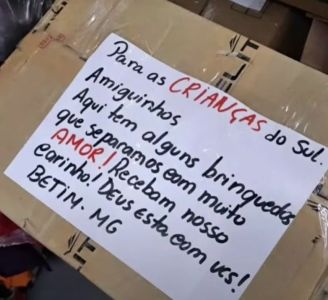 Para as CRIANÇAS do Sul.
Amiguinhos
Aqui tem alguns brinquedos
que separamos com muito
AMOR! Recebam nosso
carinho! Deus esta com vcs!
BETIM. MG